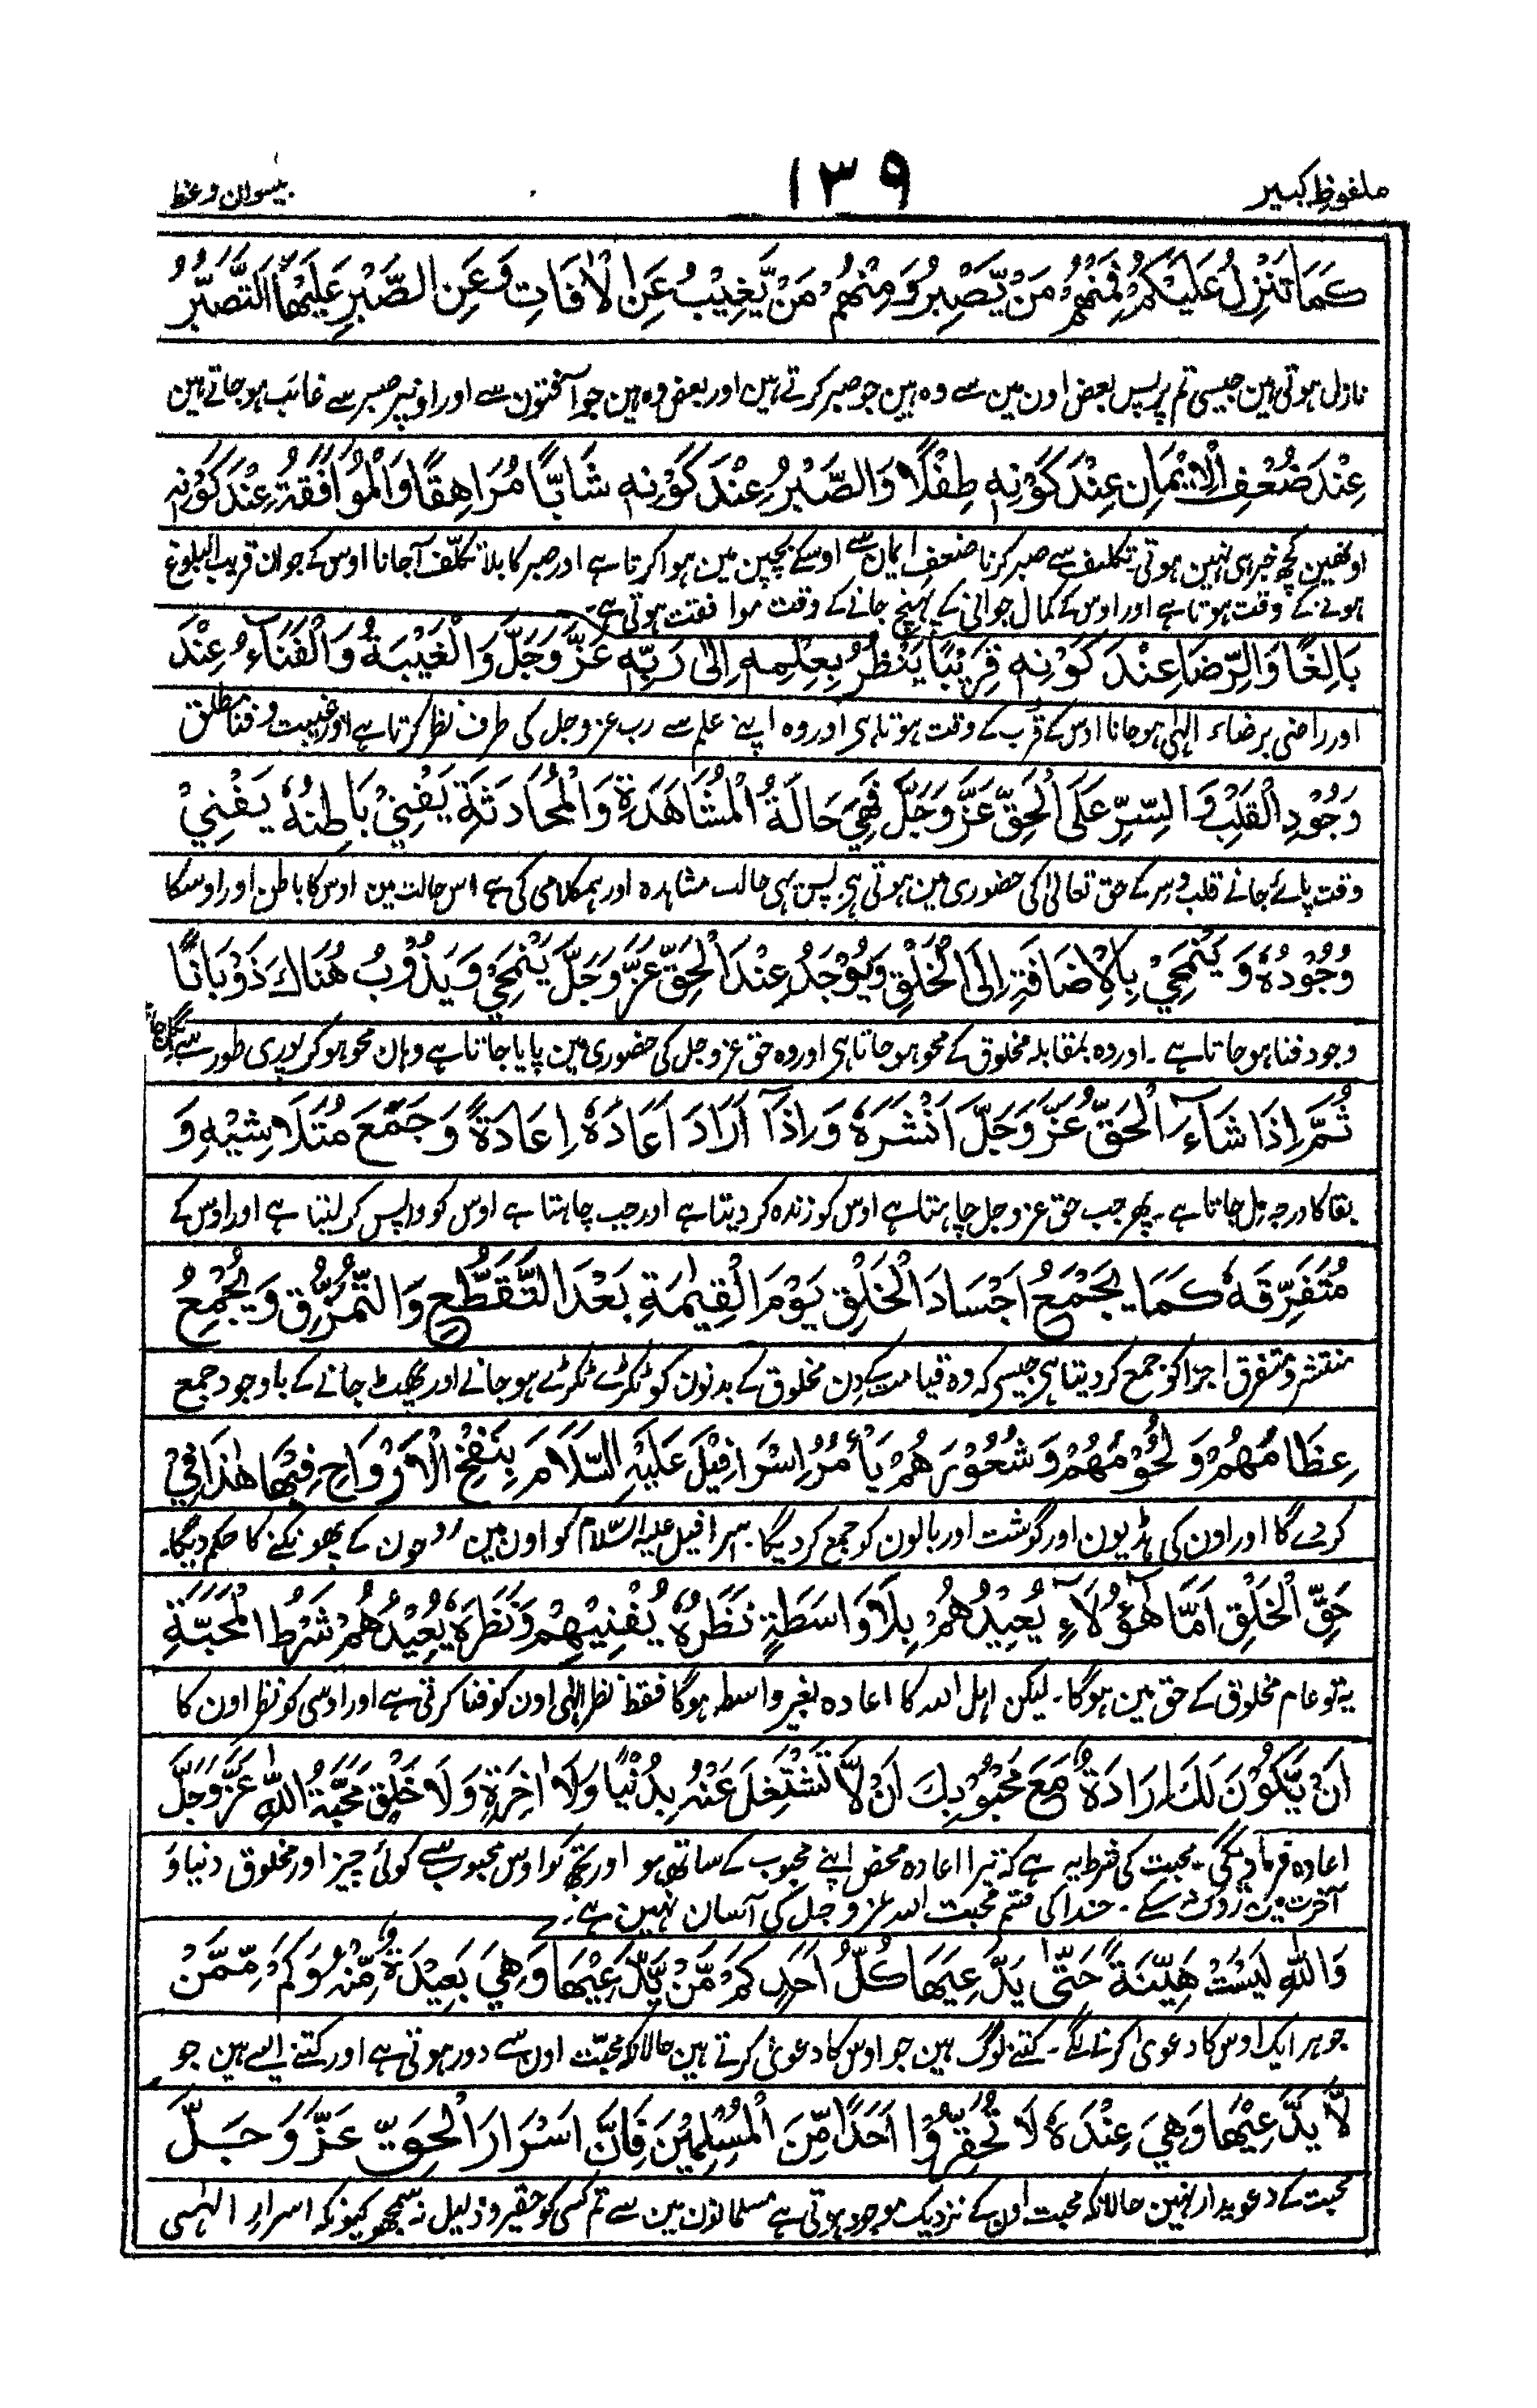 ملفوظِ کبیر
۱۳۹
بیسوان وعظ
كَمَا تَنْزِلُ عَلَيْكُمْ فَمِنْهُمْ مَنْ يَّصْبِرُ وَمِنْهُمْ مَنْ يَّغِيْبُ عَنِ الْاٰفَاتِ وَعَنِ الصَّبْرِ عَلَيْهَا اَلتَّصَبُّرُ
نازل ہوتی ہین جیسی تم پر پس بعض اون مین سے وہ ہین جو صبر کرتے ہین اور بعض وہ ہین جو آفتون سے اور اونپر صبر سے غائب ہو جاتے ہین
عِنْدَ ضُعْفِ الْاِيْمَانِ عِنْدَ كَوْنِهٖ طِفْلًا وَالصَّبْرُ عِنْدَ كَوْنِهٖ شَابًّا مُرَاهِقًا وَالْمُوَافَقَةُ عِنْدَ كَوْنِهٖ
اونھین کچھ خبر ہی نہین ہوتی تکلیف سے صبر کرنا ضعفِ ایمان سے اوسکے بچپن مین ہوا کرتا ہے اور صبر کا بلا تکلّف آجانا اوس کے جوان قریب البلوغ
ہونے کے وقت ہوتا ہے اور اوس کے کمال جوانی کے پہنچ جانے کے وقت موافقت ہوتی ہے
بَالِغًا وَالرِّضَا عِنْدَ كَوْنِهٖ قَرِيْبًا يَنْظُرُ بِعِلْمِهٖ اِلٰى رَبِّهٖ عَزَّ وَجَلَّ وَالْغَيْبَةُ وَالْفَنَاءُ عِنْدَ
اور راضی برضاء الٰہی ہو جانا اوس کے قُرب کے وقت ہوتا ہی اور وہ اپنے علم سے رب عزوجل کی طرف نظر کرتا ہے اور غیبت و فنا مطلق
وُجُوْدِ الْقَلْبِ وَالسِّرِّ عَلَى الْحَقِّ عَزَّ وَجَلَّ فَهِيَ حَالَةُ الْمُشَاهَدَةِ وَالْمُحَادَثَةِ يَفْنِيْ بَاطِنُهٗ يَفْنِيْ
وقت پائے جانے قلب و سِر کے حق تعالیٰ کی حضوری مین ہوتی ہی پس یہی حالت مشاہدہ اور ہمکلامی کی ہے اس حالت مین اوس کا باطن اور اوسکا
وُجُوْدُهٗ وَيَنْمَحِيْ بِالْاِضَافَةِ اِلَى الْخَلْقِ وَيُوْجَدُ عِنْدَ الْحَقِّ عَزَّ وَجَلَّ يَنْمَحِيْ وَيَذُوْبُ هُنَاكَ ذَوْبَانًا
وجود فنا ہو جاتا ہے ۔ اور وہ بمقابلہ مخلوق کے محو ہو جاتا ہی اور وہ حق عزوجل کی حضوری مین پایا جاتا ہے وہان محو ہو کر پوری طور سے
ثُمَّ اِذَا شَاءَ الْحَقُّ عَزَّ وَجَلَّ اَنْشَرَهٗ وَاِذَا اَرَادَ اَعَادَهٗ اِعَادَةً وَجَمَعَ مُتَلَاشِيْهِ وَ
بقا کا درجہ مل جاتا ہے ۔ پھر جب حق عزوجل چاہتا ہے اوس کو زندہ کر دیتا ہے اور جب چاہتا ہے اوس کو واپس کر لیتا ہے اور اوس کے
مُتَفَرِّقَهٗ كَمَا يَجْمَعُ اَجْسَادَ الْخَلْقِ يَوْمَ الْقِيٰمَةِ بَعْدَ التَّقَطُّعِ وَالتَّمَزُّقِ وَيَجْمَعُ
منتشر و متفرق اجزا کو جمع کر دیتا ہی جیسے کہ وہ قیامت کے دن مخلوق کے بدنون کو ٹکڑے ٹکڑے ہو جانے اور پھٹ جانے کے باوجود جمع
عِظَامَهُمْ وَلُحُوْمَهُمْ وَشُعُوْرَهُمْ يَأْمُرُ اِسْرَافِيْلَ عَلَيْهِ السَّلَامُ بِنَفْخِ الْاَرْوَاحِ فِيْهَا هٰذَا فِيْ
کر دے گا اور اون کی ہڈیون اور گوشت اور بالون کو جمع کر دیگا ۔ اسرافیل علیہ السّلام کو اون مین روحون کے پھونکنے کا حکم دیگا۔
حَقِّ الْخَلْقِ اَمَّا هٰؤُلَاءِ يُعِيْدُهُمْ بِلَا وَاسَطَةٍ نَظَرُهٗ يُفْنِيْهِمْ وَنَظَرُهٗ يُعِيْدُهُمْ شَرْطُ الْمَحَبَّةِ
یہ تو عام مخلوق کے حق مین ہوگا ۔ لیکن اہل اللہ کا اعادہ بغیر واسطہ ہوگا فقط نظر الٰہی اون کو فنا کرتی ہے اور اوسی کو نظر اون کا
اَنْ يَّكُوْنَ لَكَ اِرَادَةٌ مَعَ مَحْبُوْبِكَ اَنْ لَّا تَشْتَغِلَ عَنْهُ بِدُنْيَا وَلَا اٰخِرَةٍ وَلَا خَلْقٍ مَحَبَّةُ اللّٰهِ عَزَّ وَجَلَّ
اعادہ فرما دیگی ۔ محبت کی شرط یہ ہے کہ تیرا اعادہ محض اپنے محبوب کے ساتھ ہو اور تجھ کو اوس محبوب سے کوئی چیز اور مخلوق دنیا و
آخرت مین نہ روک سکے ۔ خدا کی قسم محبت اللہ عزوجل کی آسان نہین ہے ۔
وَاللّٰهِ لَيْسَتْ هَيِّنَةً حَتّٰى يَدَّعِيَهَا كُلُّ اَحَدٍ كَمْ مَّنْ يَّدَّعِيْهَا وَهِيَ بَعِيْدَةٌ مِّنْهُ وَكَمْ مِّمَّنْ
جو ہر ایک اوس کا دعوی کرنے لگے ۔ کتنے لوگ ہین جو اوس کا دعویٰ کرتے ہین حالانکہ محبّت اون سے دور ہوتی ہے اور کتنے ایسے ہین جو
لَّا يَدَّعِيْهَا وَهِيَ عِنْدَهٗ لَا تُحَقِّرُوْا اَحَدًا مِّنَ الْمُسْلِمِيْنَ فَاِنَّ اَسْرَارَ الْحَقِّ عَزَّ وَجَلَّ
محبت کے دعویدار نہین حالانکہ محبت اون کے نزدیک موجود ہوتی ہے مسلمانون مین سے تم کسی کو حقیر و ذلیل نہ سمجھو کیونکہ اسرارِ الٰہی